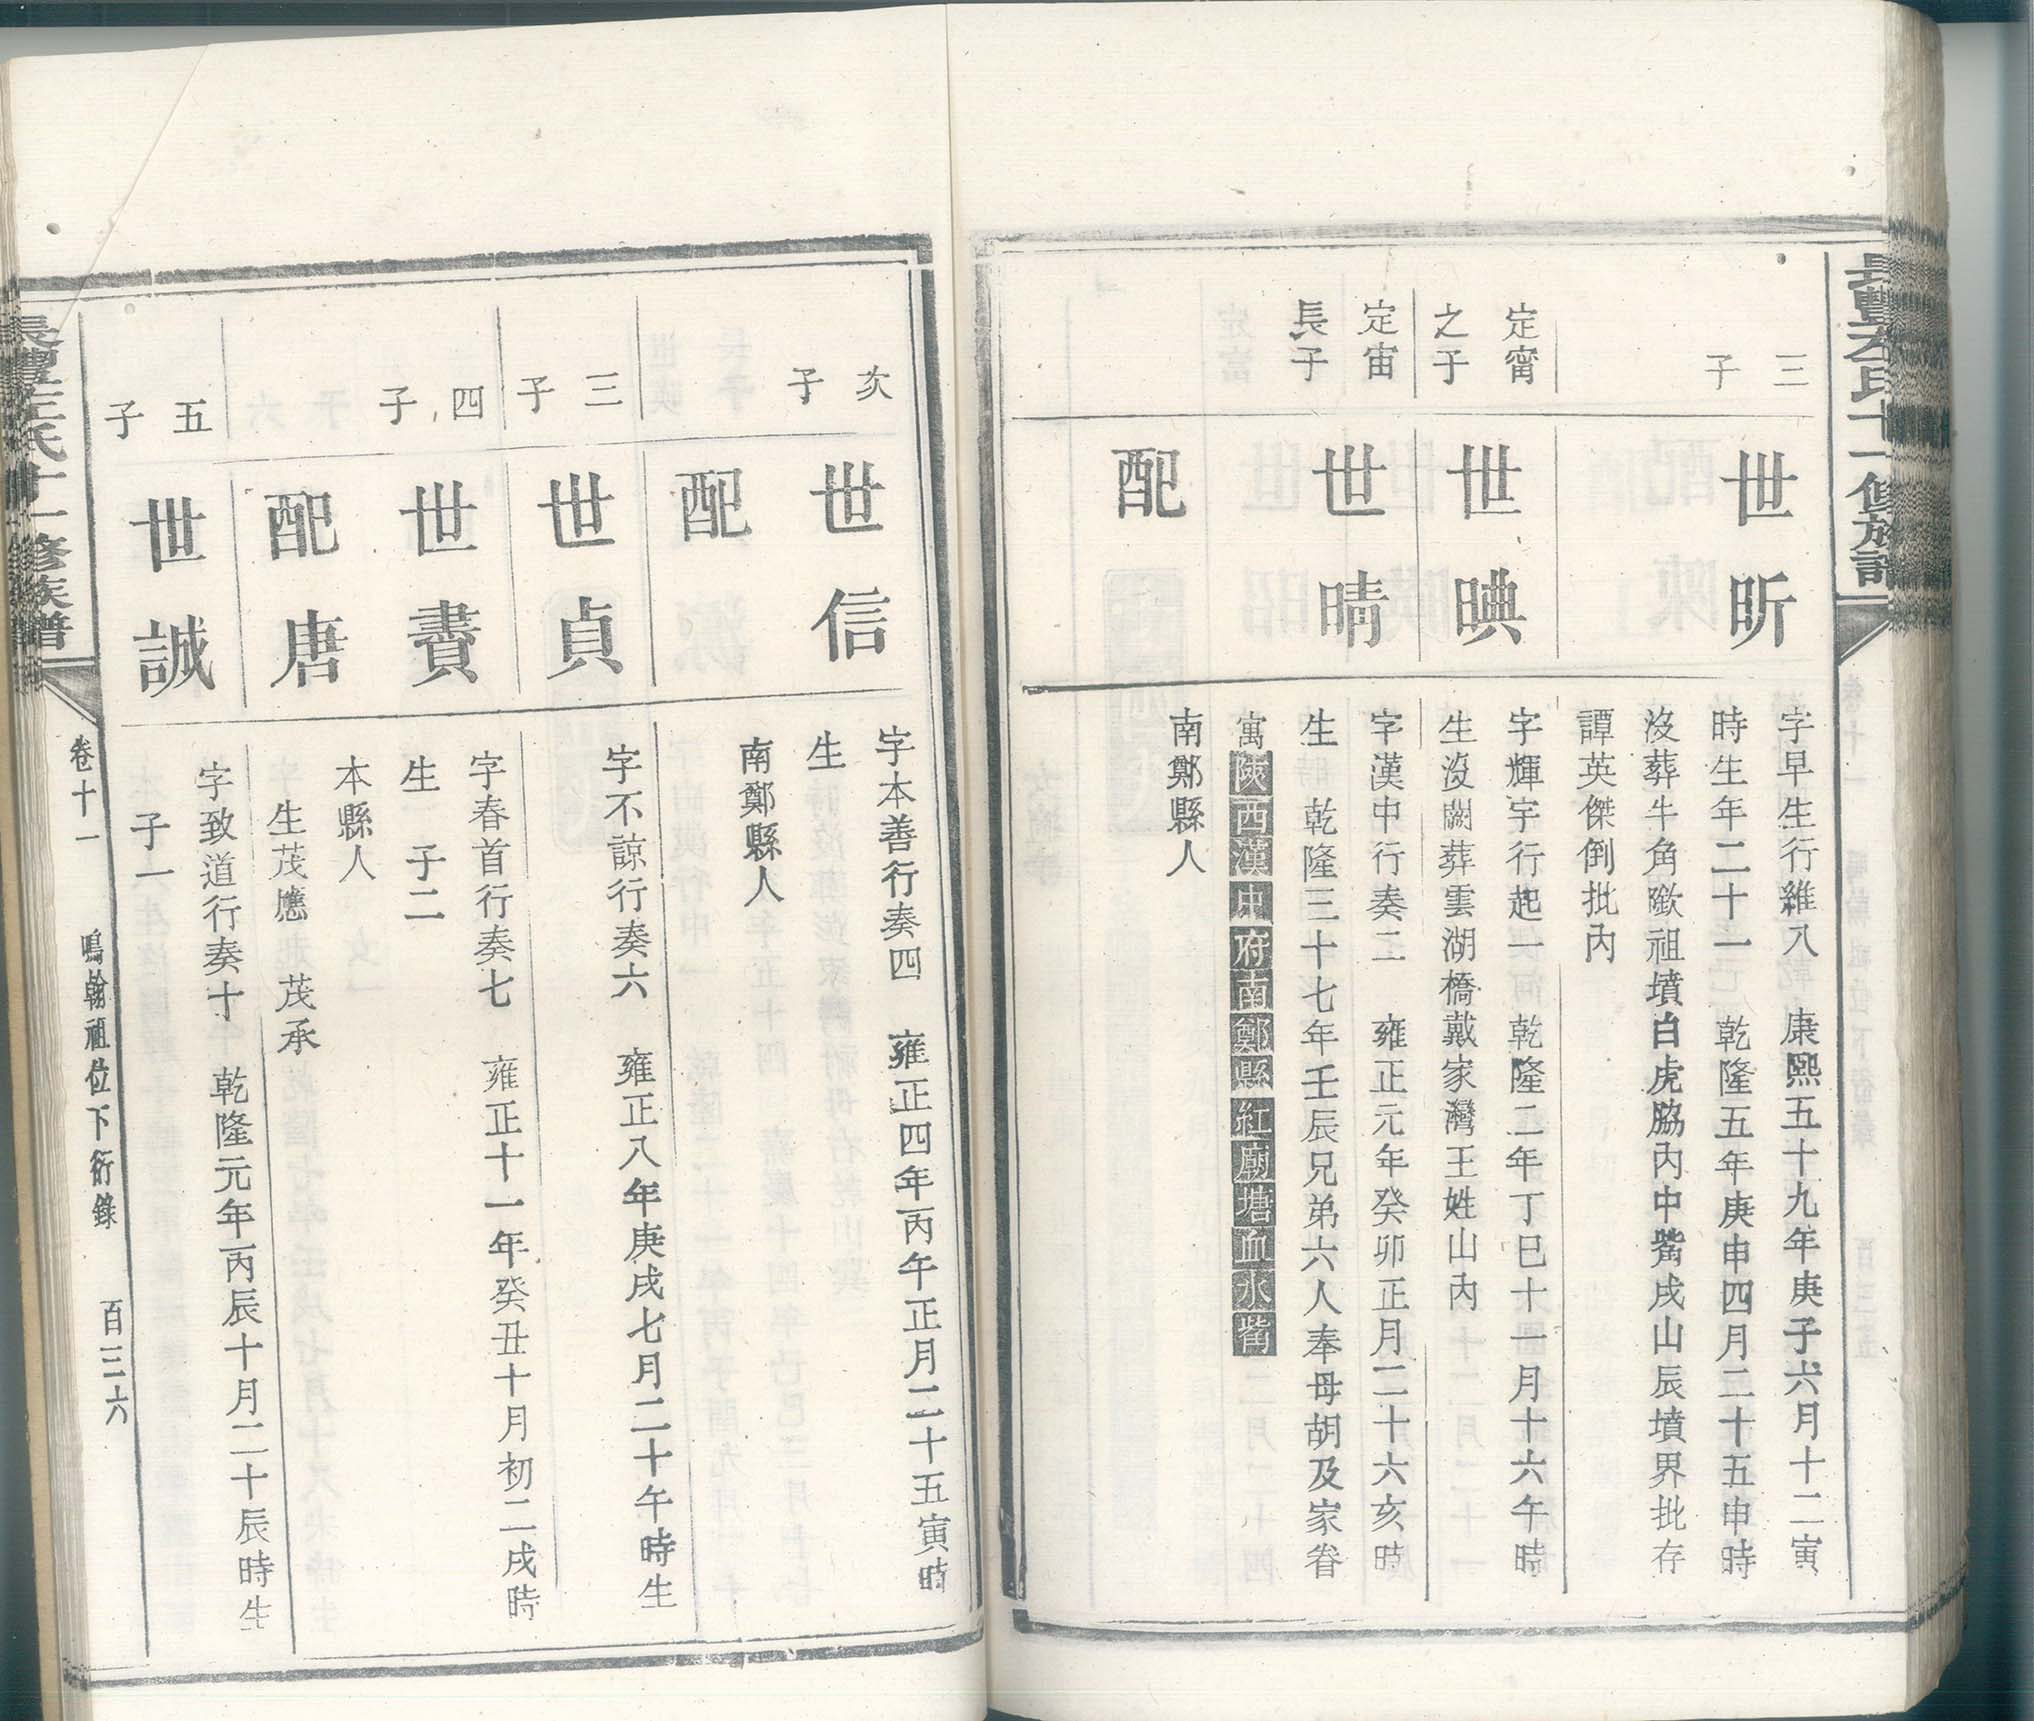 三
子
世昕
字早生行維八　康熙五十九年庚子六月十二寅
時生年二十一　乾隆五年庚申四月二十五申時
沒葬牛角墩祖墳白虎脇內中嘴戌山辰墳界批存
譚英傑倒批內
定甯
之子
世晪
字輝宇行起一　乾隆二年丁巳十一月十六午時
生沒闕葬雲湖橋戴家灣王姓山內
定宙
長子
世晴
字漢中行奏二　雍正元年癸卯正月二十六亥時
生　乾隆三十七年壬辰兄弟六人奉母胡及家眷
寓陝西漢中府南鄭縣紅廟塘血水嘴
配
南鄭縣人
次
子
世信
字本善行奏四　雍正四年丙午正月二十五寅時
生
配
南鄭縣人
三
子
世貞
字不諒行奏六　雍正八年庚戌七月二十午時生
四
子
世賚
字春首行奏七　雍正十一年癸丑十月初二戌時
生　子二
配唐
本縣人
生茂應　茂承
五
子
世誠
字致道行奏十　乾隆元年丙辰十月二十辰時生
子一
氏十一修族譜
卷十一　鳴翰祖位下衍錄　百三六